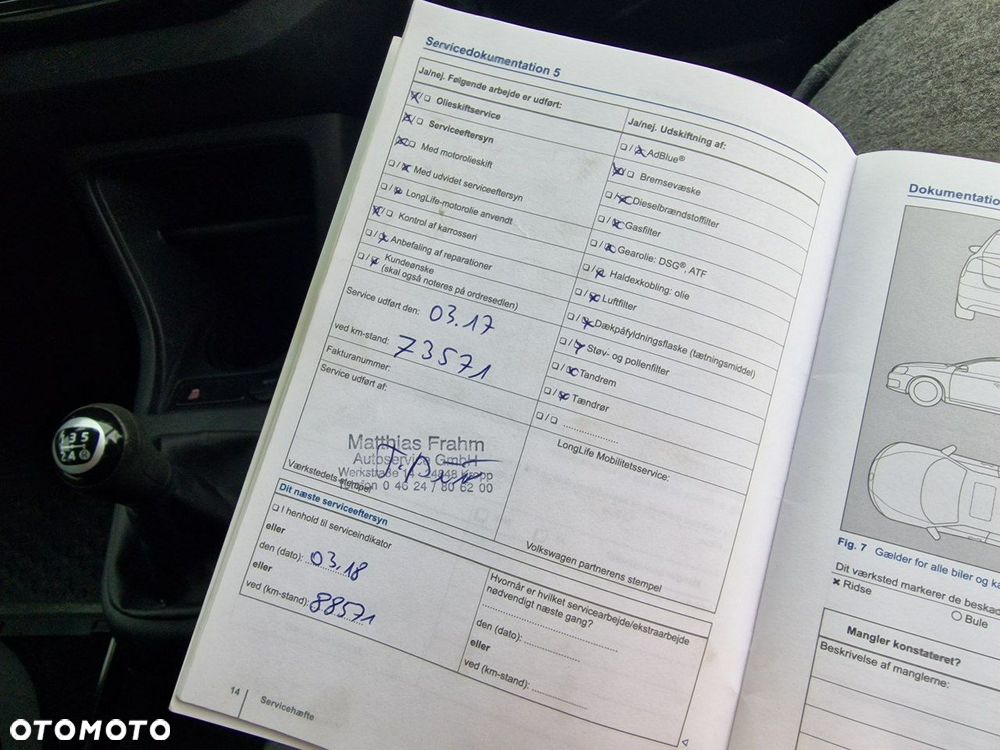 Servicedokumentation 5
Ja/nej. Følgende arbejde er udført:
Olieskiftservice
Serviceeftersyn
Med motorolieskift
Med udvidet serviceeftersyn
LongLife-motorolie anvendt
Kontrol af karrosseri
Anbefaling af reparationer
Kundeønske
(skal også noteres på ordresedlen)
Service udført den: 03.17
ved km-stand: 73571
Fakturanummer:
Service udført af:
Matthias Frahm
Autoservice GmbH
Werkstraße 14 - 24848 Kropp
Telefon 0 46 24 / 80 62 00
Værkstedets stempel
Ja/nej. Udskiftning af:
AdBlue®
Bremsevæske
Dieselbrændstoffilter
Gasfilter
Gearolie: DSG®, ATF
Haldexkobling: olie
Luftfilter
Dækpåfyldningsflaske (tætningsmiddel)
Støv- og pollenfilter
Tandrem
Tændrør
LongLife Mobilitetsservice:
Volkswagen partnerens stempel
Dit næste serviceeftersyn
I henhold til serviceindikator
eller
den (dato): 03.18
eller
ved (km-stand): 88571
Hvornår er hvilket servicearbejde/ekstraarbejde
nødvendigt næste gang?
den (dato):
eller
ved (km-stand):
14
Servicehæfte
Dokumentatio
Fig. 7 Gælder for alle biler og ka
Dit værksted markerer de beskad
Ridse
Bule
Mangler konstateret?
Beskrivelse af manglerne:
3 5
2 4
OTOMOTO